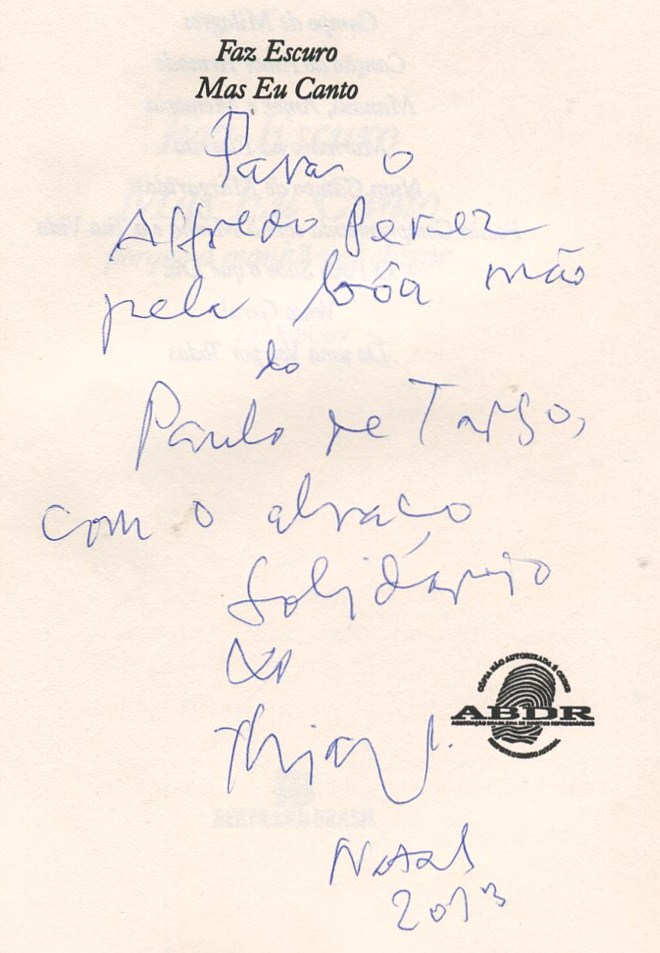 Faz Escuro
Mas Eu Canto
Para o
Alfredo Perez
pela bôa mão
do
Paulo de Tarso,
com o abraço
solidário
do
Thiago
CÓPIA NÃO AUTORIZADA É CRIME
ABDR
ASSOCIAÇÃO BRASILEIRA DE DIREITOS REPROGRÁFICOS
RESPEITE O DIREITO AUTORAL
Natal
2013